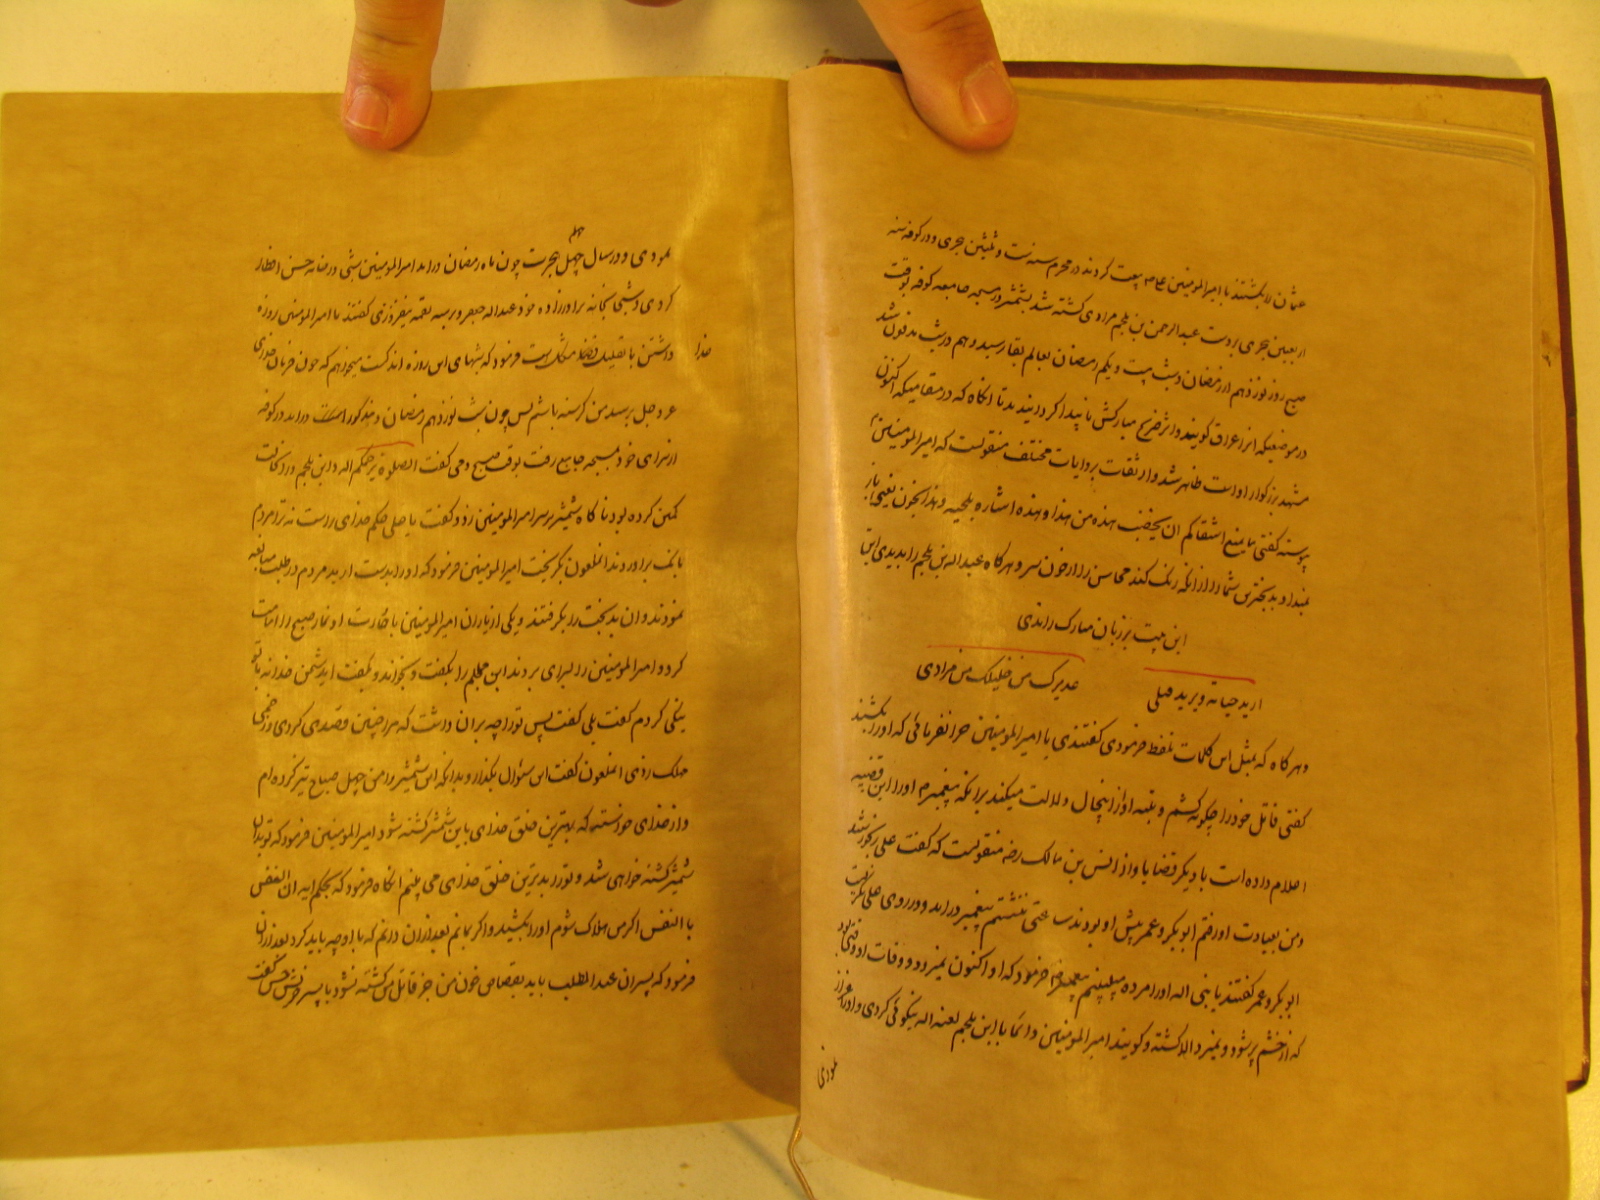 عثمان را بکشتند با امیرالمومنین عامه بیعت کردند در محرم سنه ست و ثلثین هجری و در کوفه سنه
اربعین هجری بر دست عبدالرحمن بن ملجم مرادی کشته شد بشمشیر در مسجد جامعه کوفه بوقت
صبح روز نوزدهم از رمضان و شب بیست و یکم رمضان بعالم بقا رسید و هم در شب مدفون شد
در موضعیکه انرا غراق کویند و اثر ضریح مبارکش ناپیدا کردانیدند تا انکاه که در مقامیکه اکنون
مشهد بزرکوار او است ظاهر شد و از ثقات بروایات مختلف منقولست که امیرالمومنین م
پیوسته کفتی ما یمنع اشقاکم ان یخضب هذه من هذا و هذه اشاره بلحیه و هذا بخون یعنی باز
نمیدارد بدبخترین شما را از انکه رنک کند محاسن را از خون سر و هر کاه عبداله بن ملجم را بدیدی این
این بیت بر زبان مبارک راندی
ارید حیاته و یرید قتلی عذیرک من خلیلک من مرادی
و هر کاه که بمثل این کلمات تلفظ فرمودی کفتندی یا امیرالمومنین چرا نفرمائی که او را بکشند
کفتی قاتل خود را چکونه کشم و تنبه او از اینحال دلالت میکند برانکه پیغمبر م او را این قضیه
اعلام داده است با دیکر قضایا و از انس بن مالک رضه منقولست که کفت علی رنجور شد
و من بعیادت او رفتم ابوبکر و عمر پیش او بودند ساعتی بنشستم پیغمبر درامد و در روی علی نکریست
ابوبکر و عمر کفتند یا نبی اله او را مرده میبینیم پیغمبر م فرمود که او اکنون نمیرد و وفات او وقتی بود
که از خشم پر شود و نمیرد الا کشته و کویند امیرالمومنین دائما با ابن ملجم لعنه اله نیکوئی کردی و او را عزاز
نمودی
چهلم
نمودی و در سال چهل هجرت چون ماه رمضان درامد امیرالمومنین شبی در خانه حسن افطار
کردی و شبی بخانه برادرزاده خود عبداله جعفر و بر سه لقمه نیفزودی کفتند یا امیرالمومنین روزه
داشتن با تقلیل غذا مشکل است فرمود که شبهای این روزه اندکست میخواهم که چون فرمان خدای
غذا
عز و جل برسد من کرسنه باشم پس چون شب نوزدهم رمضان مذکور درامد در کوفه
از سرای خود بمسجد جامع رفت بوقت صبح و می کفت الصلوه یرحمکم اله و ابن ملجم در
کمین کرده بود ناکاه شمشیر بر سر امیرالمومنین زد و کفت یا علی حکم خدای راست نه ترا مردم
بانک براوردند انملعون بکریخت امیرالمومنین فرمود که او را بدست ارید مردم در طلب مبالغه
نمودند و ان بدبخت را بکرفتند و یکی از یاران امیرالمومنین باشارت او نماز صبح را امامت
کرد و امیرالمومنین را بسرای بردند ابن ملجم را بکفت و بخواند و بکفت ای دشمن خدا نه با تو
نیکی کردم کفت بلی کفت پس تو را چه بران داشت که مرا چنین قصدی کردی و زخم
مهلک زدی انملعون کفت این سئوال بکذار و بدانکه این شمشیر را من چهل صباح تیز کرده ام
و از خدای خواسته که بدترین خلق خدای باین شمشیر کشته شود امیرالمومنین فرمود که تو بدان
شمشیر کشته خواهی شد و تو را بدترین خلق خدای می بینم انکاه فرمود که بحکم ایه ان النفس
با النفس اکر من هلاک شوم او را بکشید و اکر بمانم بعد از ان دانم که با او چه باید کرد بعد از ان
فرمود که پسران عبدالمطلب باید بقصاص خون من جز قاتل من کشته نشود با پسر خویش حسن کفت